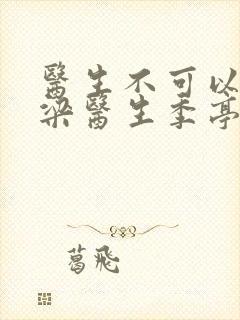 醫生不可以
梁醫生季亭
葛飛